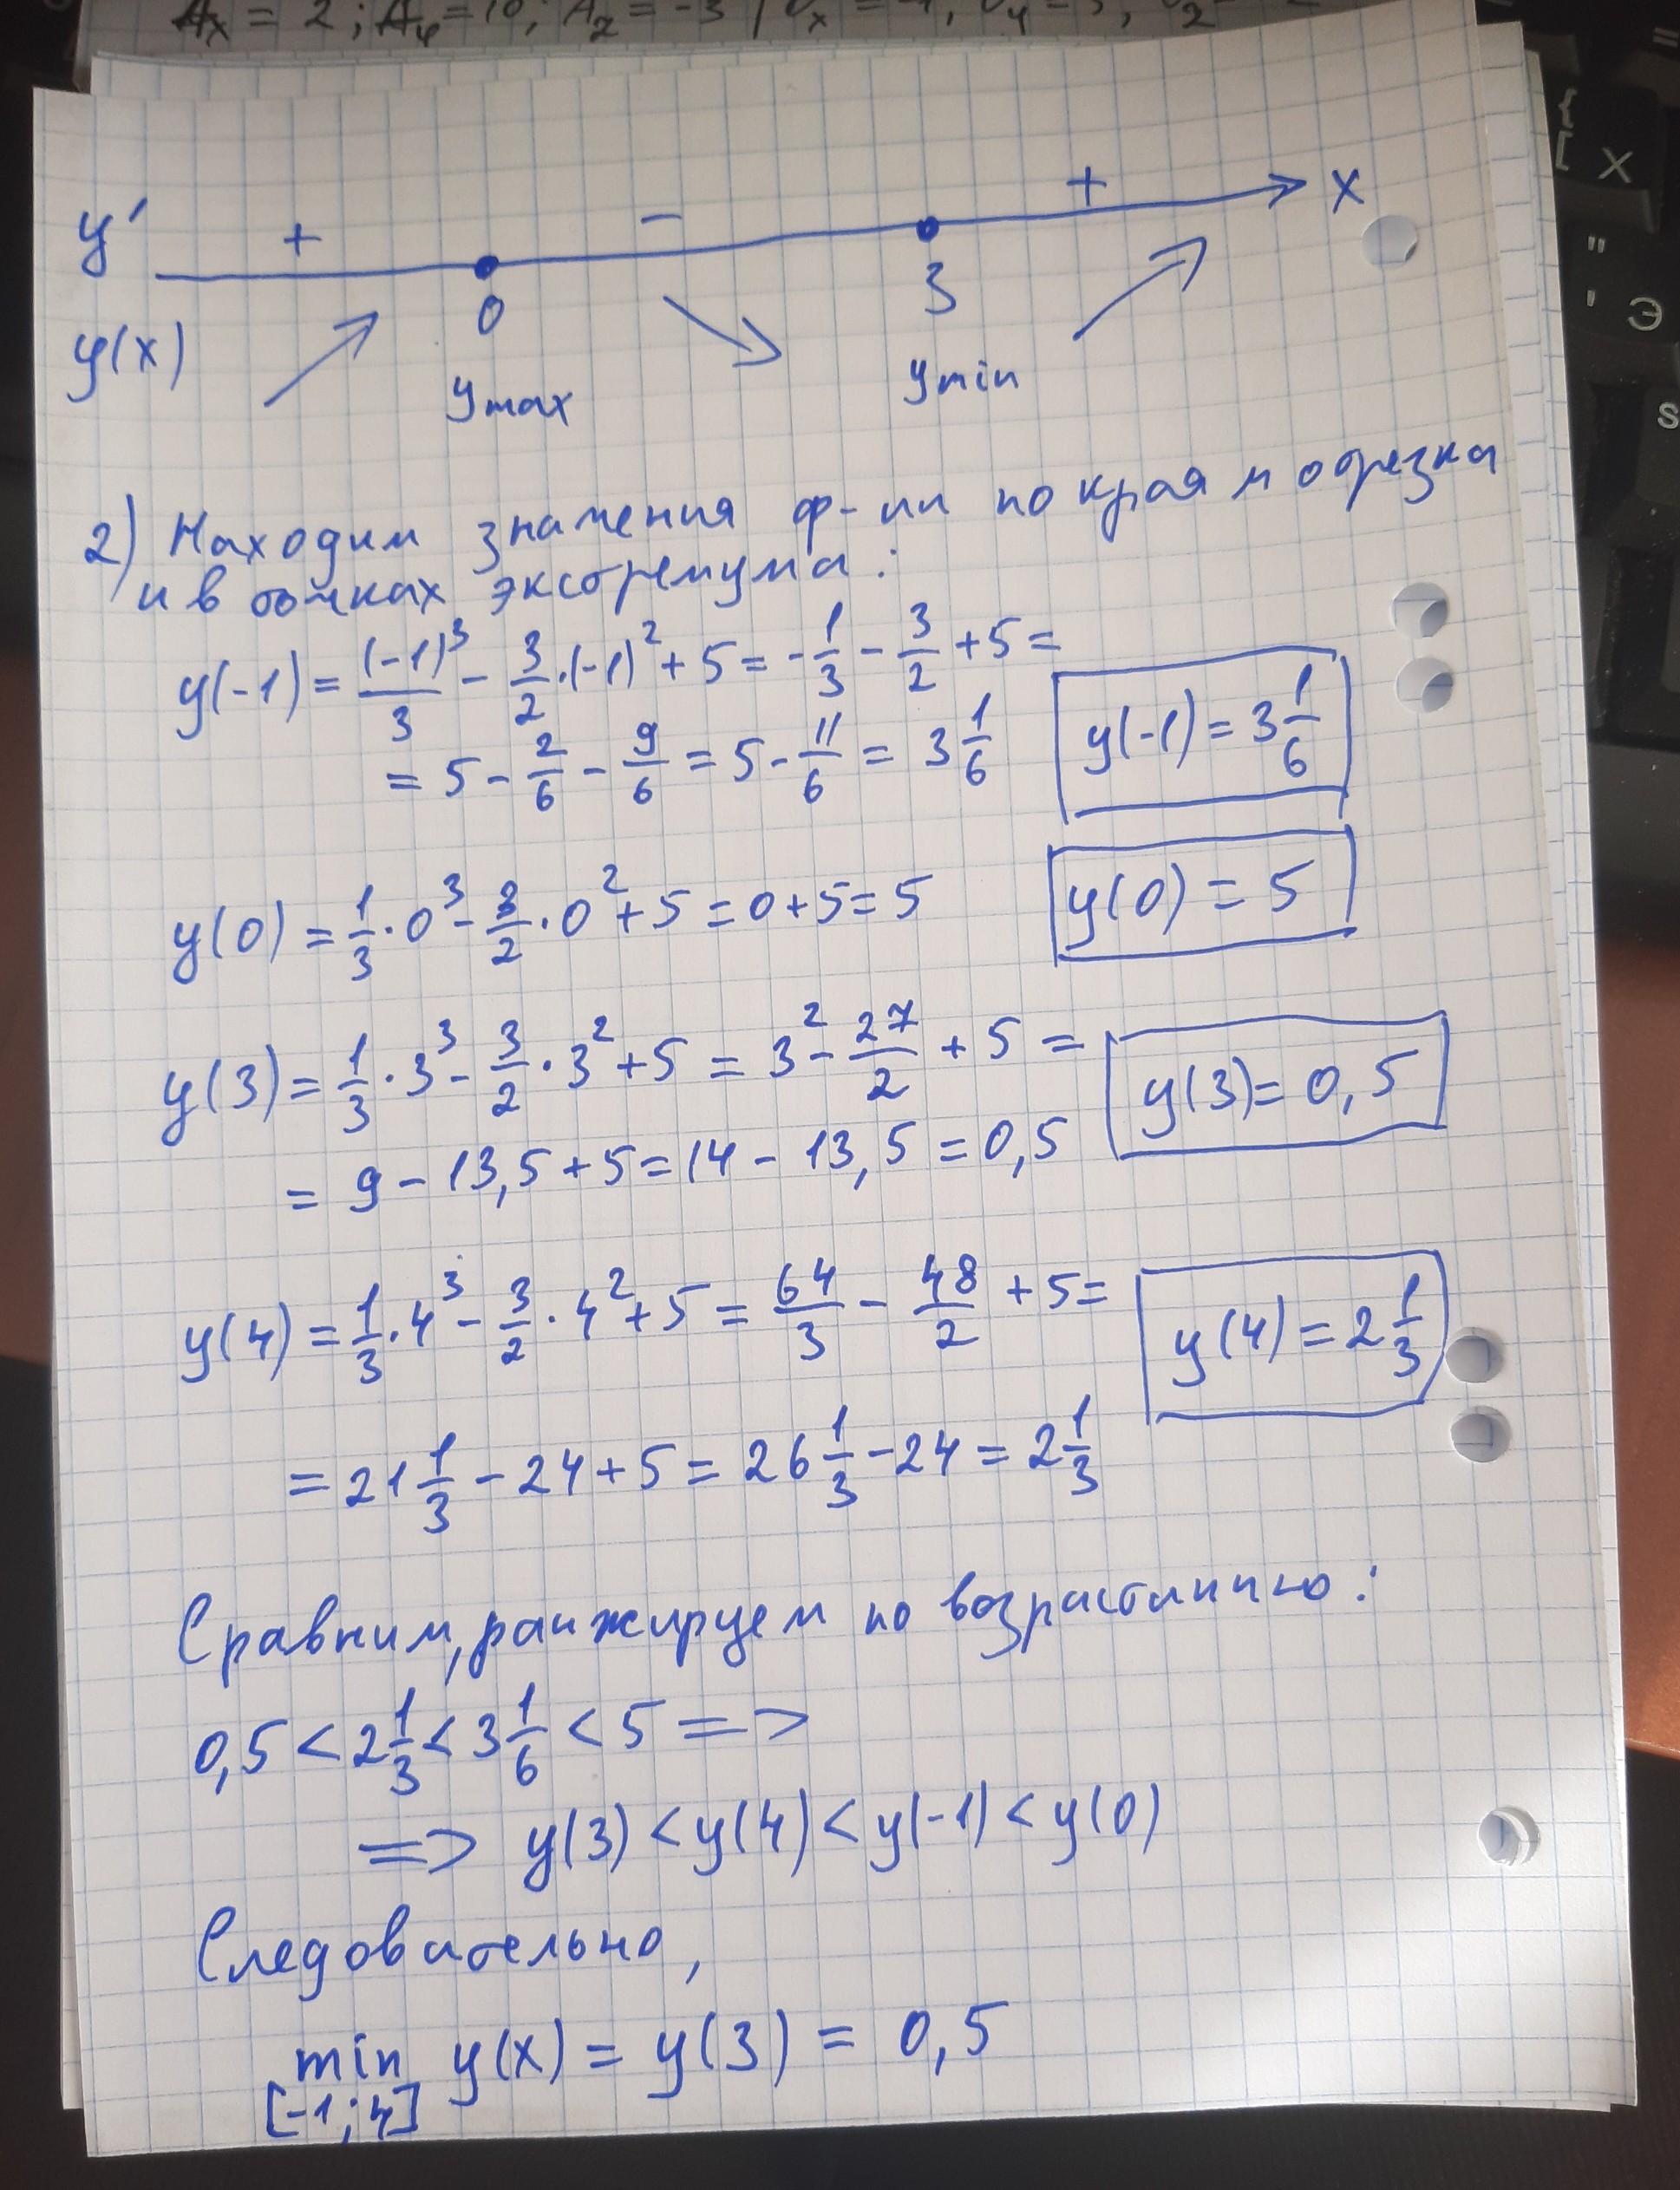 Ax = 2; Ay = 10; Az = -3
y' + - + x
0 3
y(x) ymax ymin
2) Находим значения ф-ии по краям отрезка
и в точках экстремума:
y(-1) = (-1)³/3 - 3/2·(-1)² + 5 = -1/3 - 3/2 + 5 =
= 5 - 2/6 - 9/6 = 5 - 11/6 = 3 1/6
y(-1) = 3 1/6
y(0) = 1/3·0³ - 3/2·0² + 5 = 0+5 = 5
y(0) = 5
y(3) = 1/3·3³ - 3/2·3² + 5 = 3² - 27/2 + 5 =
= 9 - 13,5 + 5 = 14 - 13,5 = 0,5
y(3) = 0,5
y(4) = 1/3·4³ - 3/2·4² + 5 = 64/3 - 48/2 + 5 =
= 21 1/3 - 24 + 5 = 26 1/3 - 24 = 2 1/3
y(4) = 2 1/3
Сравним, ранжируем по возрастанию:
0,5 < 2 1/3 < 3 1/6 < 5 =>
=> y(3) < y(4) < y(-1) < y(0)
Следовательно,
min y(x) = y(3) = 0,5
[-1;4]
{
[ Х
"
' Э
S